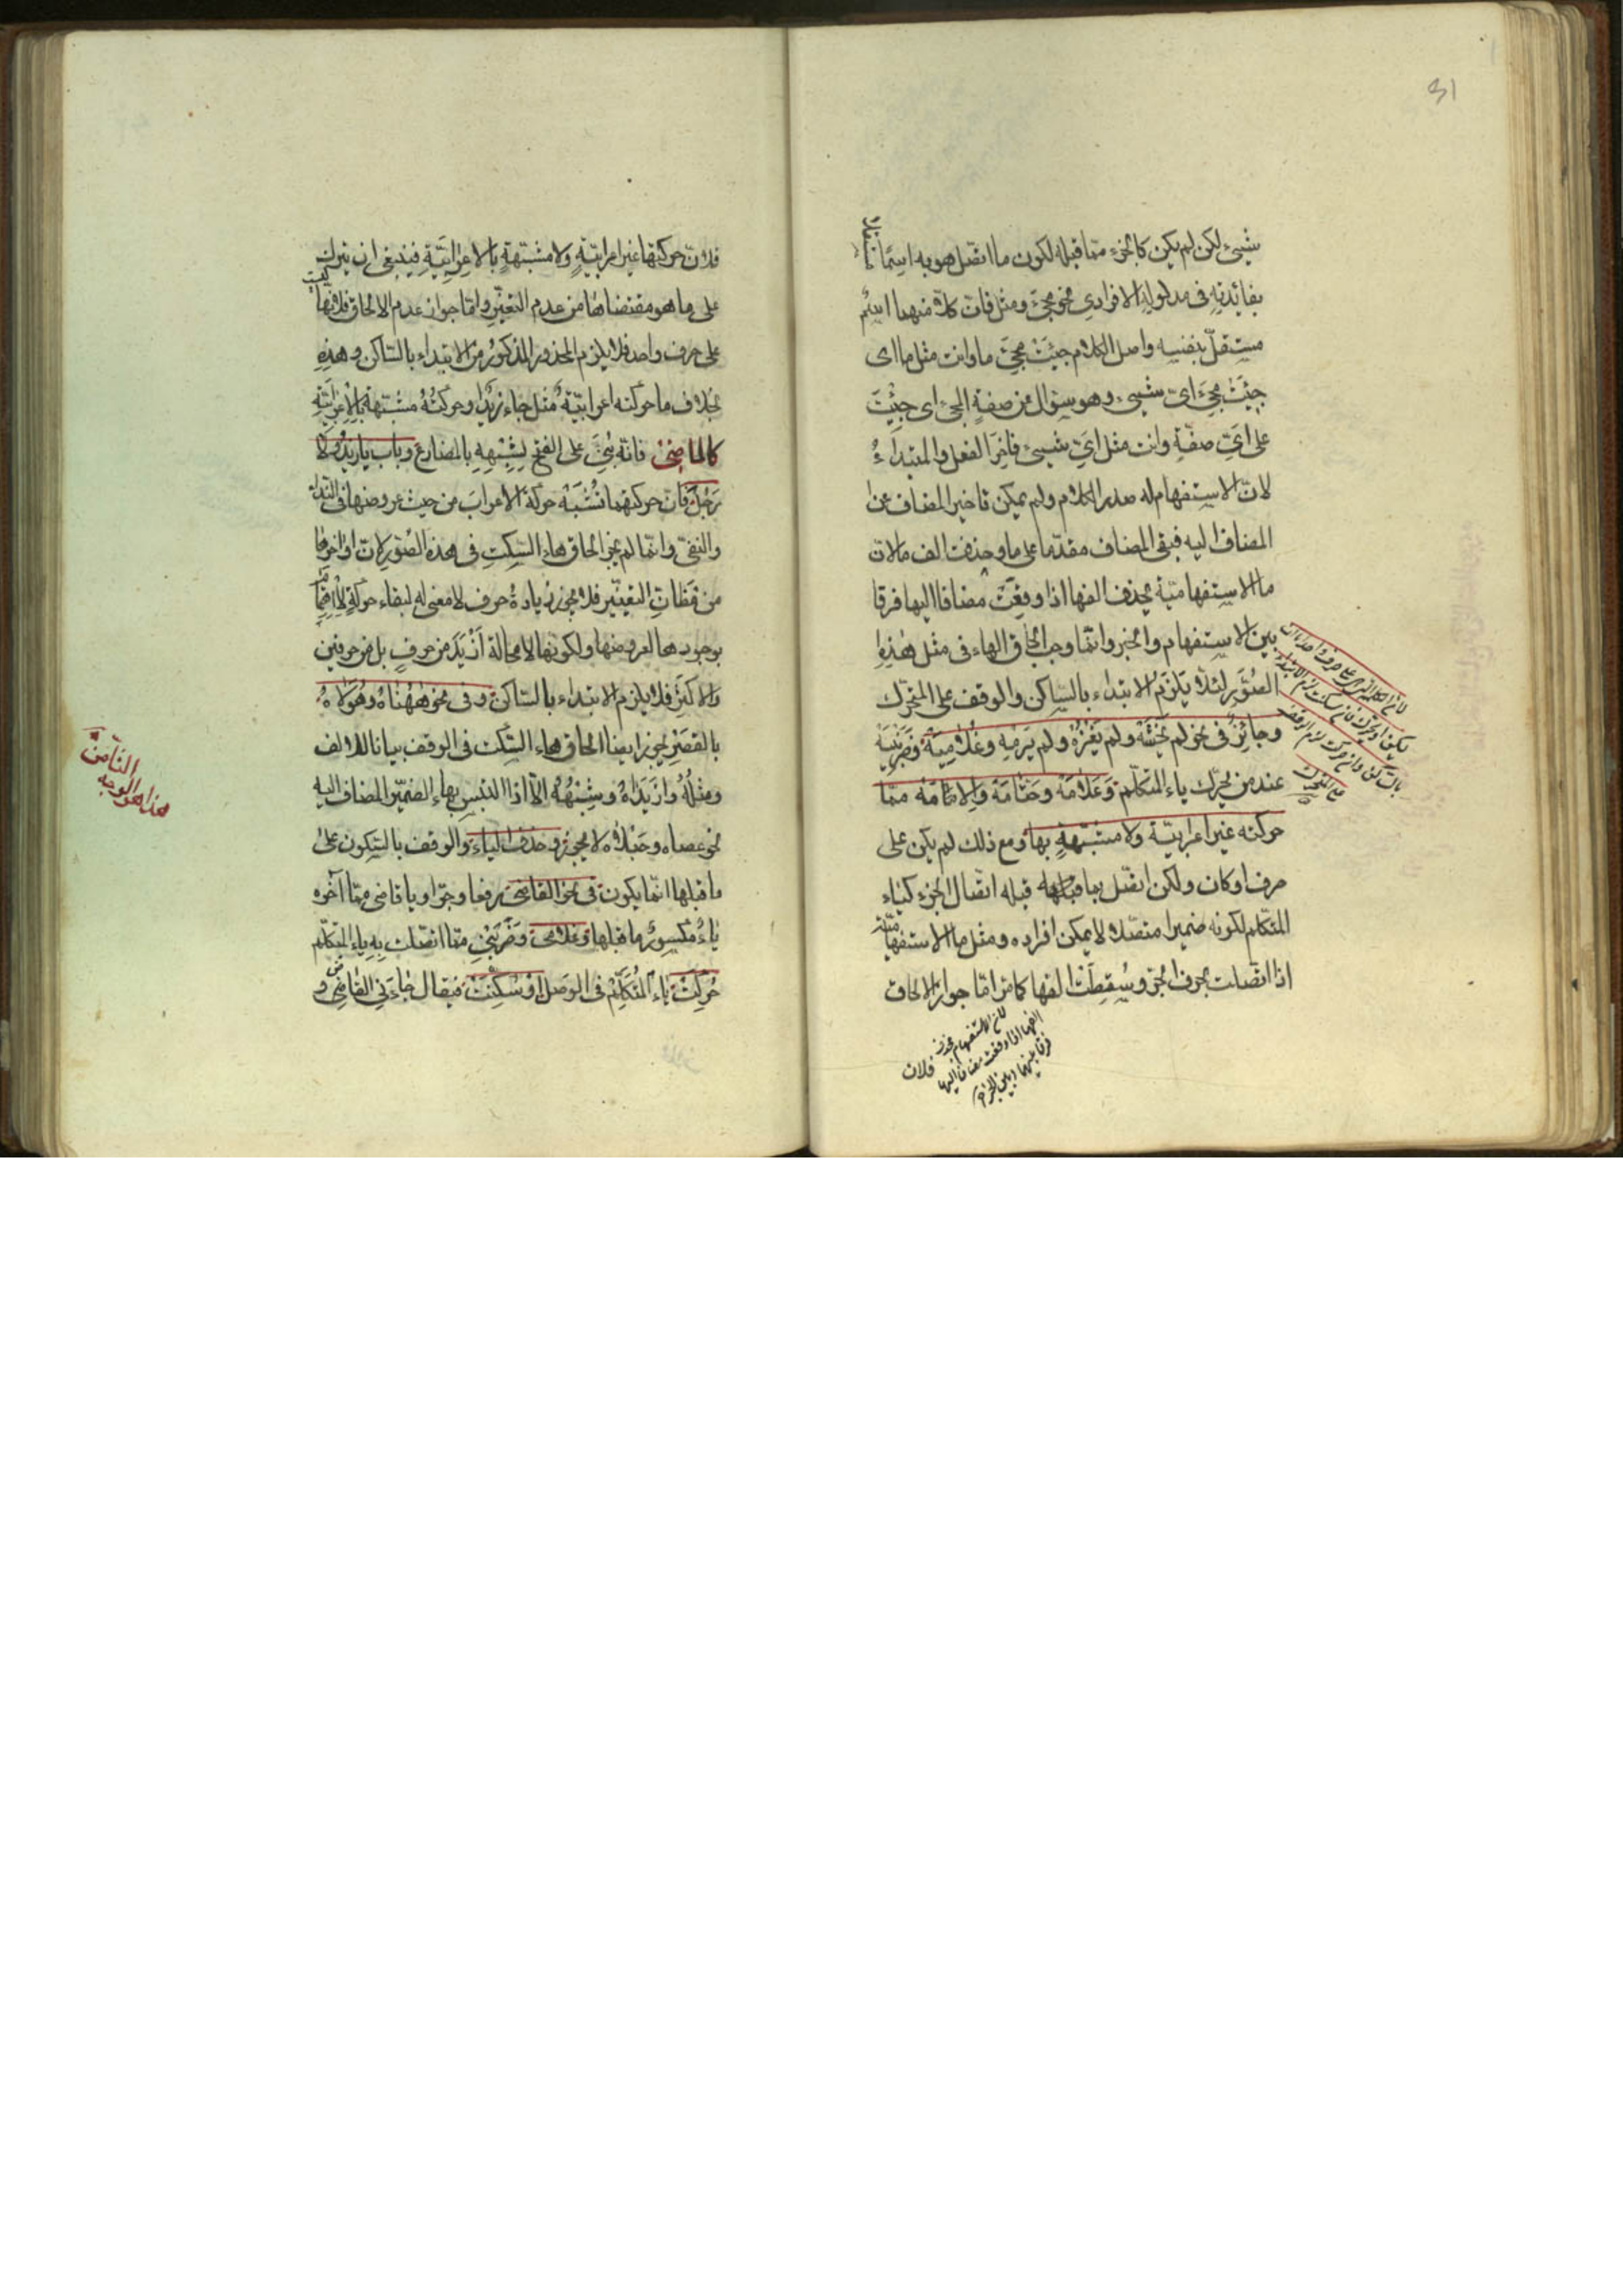 31
شيئ لكن لم يكن كالجزء مما قبله لكون ما اتصل هو به اسما
بفائدته في مدلوله الافرادي نحو مجئ ومثل فان كلا منهما اسم
مستقل بنفسه واصل الكلام جئت مجئ ما وانت مثل ما اى
جئت مجئ اى شيئ وهو سؤال عن صفة المجئ اى جئت
على اى صفة وانت مثل اى شيئ فاخر الفعل والمبتداء
لان الاستفهام له صدر الكلام ولم يمكن تاخير المضاف عن
المضاف اليه فبقى المضاف مقدما على ما وحذفت الف ما لان
ما الاستفهامية يحذف الفها اذا وقعت مضافا اليها فرقا
بين الاستفهام والخبر وانما وجب الحاق الهاء في مثل هذه
الصور لئلا يلزم الابتداء بالساكن والوقف على المتحرك
وجائز في نحو لم يخشه ولم يغزه ولم يرمه وغلاميه وضربنيه
عند من يحرك ياء المتكلم وعلامه وحتامه والامه مما
حركته غير اعرابية ولا مشبهة بها ومع ذلك لم يكن على
حرف او كان ولكن اتصل بما قبله اتصال الجزء كياء
المتكلم لكونه ضميرا متصلا لا يمكن افراده ومثل ما الاستفهامية
اذا اتصلت بحرف الجر وسقطت الفها كما مر اما جواز الالحاق
لان الاستفهام يحذف
الفها اذا وقعت مضافا اليها
فرقا بينها وبين الخبر
فلان
فلان حركتها غير اعرابية ولا مشبهة بالاعرابية فينبغى ان يترك
على ما هو مقتضاها من عدم التغير واما جواز عدم الالحاق فلانها ليست
على حرف واحد فلا يلزم المحذور المذكور من الابتداء بالساكن وهذه
بخلاف ما حركته اعرابية مثل جاء زيد او حركته مشبهة بالاعرابية
كالماضى فانه بنى على الفتح لشبهه بالمضارع وباب يا زيد ولا
رجل فان حركتهما تشبه حركة الاعراب من حيث عروضها في النداء
والنفى وانما لم يجز الحاق هاء السكت في هذه الصور لان اواخرها
من مظان التغيير فلا يجوز زيادة حرف لا معنى له لبقاء حركة
بوجودها العرو منها ولكونها لا محالة ازيد من حرف بل من حرفين
والاكثر فلا يلزم الابتداء بالساكن وفى نحو ههناه وهؤلاه
بالقصر يجوز ايضا الحاق هاء السكت في الوقف بيانا للالف
ومثله وازيداه وشبهه الا اذا التبس بهاء الضمير المضاف اليه
نحو عصاه وحبلاه لا يجوز وحذف الياء والوقف بالسكون على
ما قبلها انما يكون في نحو القاضى رفعا وجرا ويا قاضى مما آخره
ياء مكسور ما قبلها وغلامى وضربنى مما اتصلت به ياء المتكلم
حركت ياء المتكلم في الوصل او سكنت فيقال جاءنى القاض و
هذا هو الوجه
الثامن